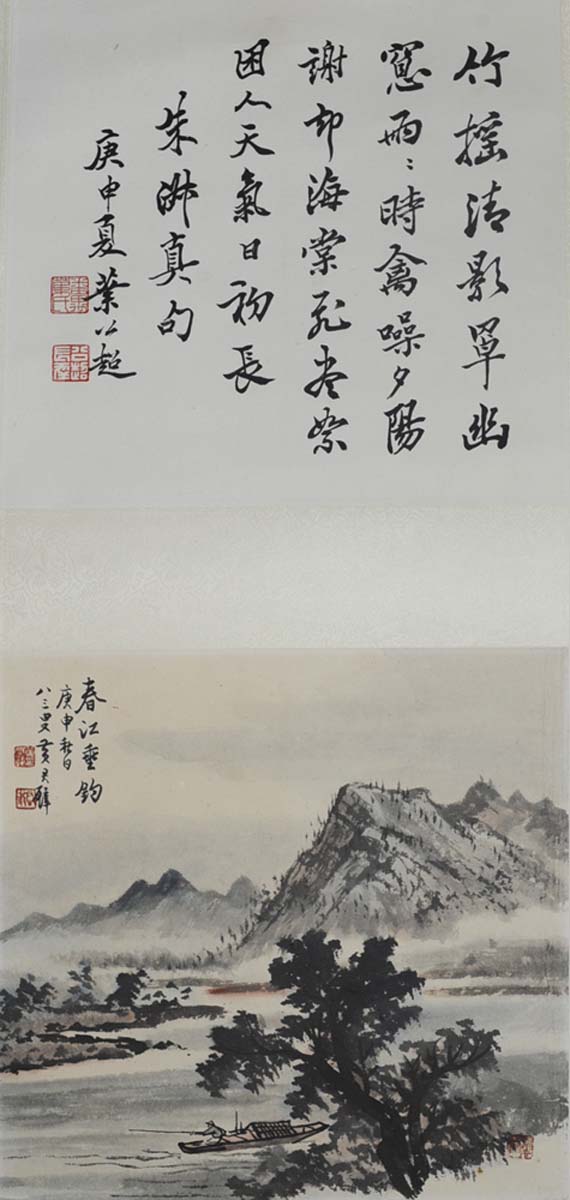 竹摇清影罩幽
窻兩〻時禽噪夕陽
謝却海棠飛盡絮
困人天氣日初長
朱淑真句
庚申夏葉公超
春江垂釣
庚申秋日
八三叟黃君璧